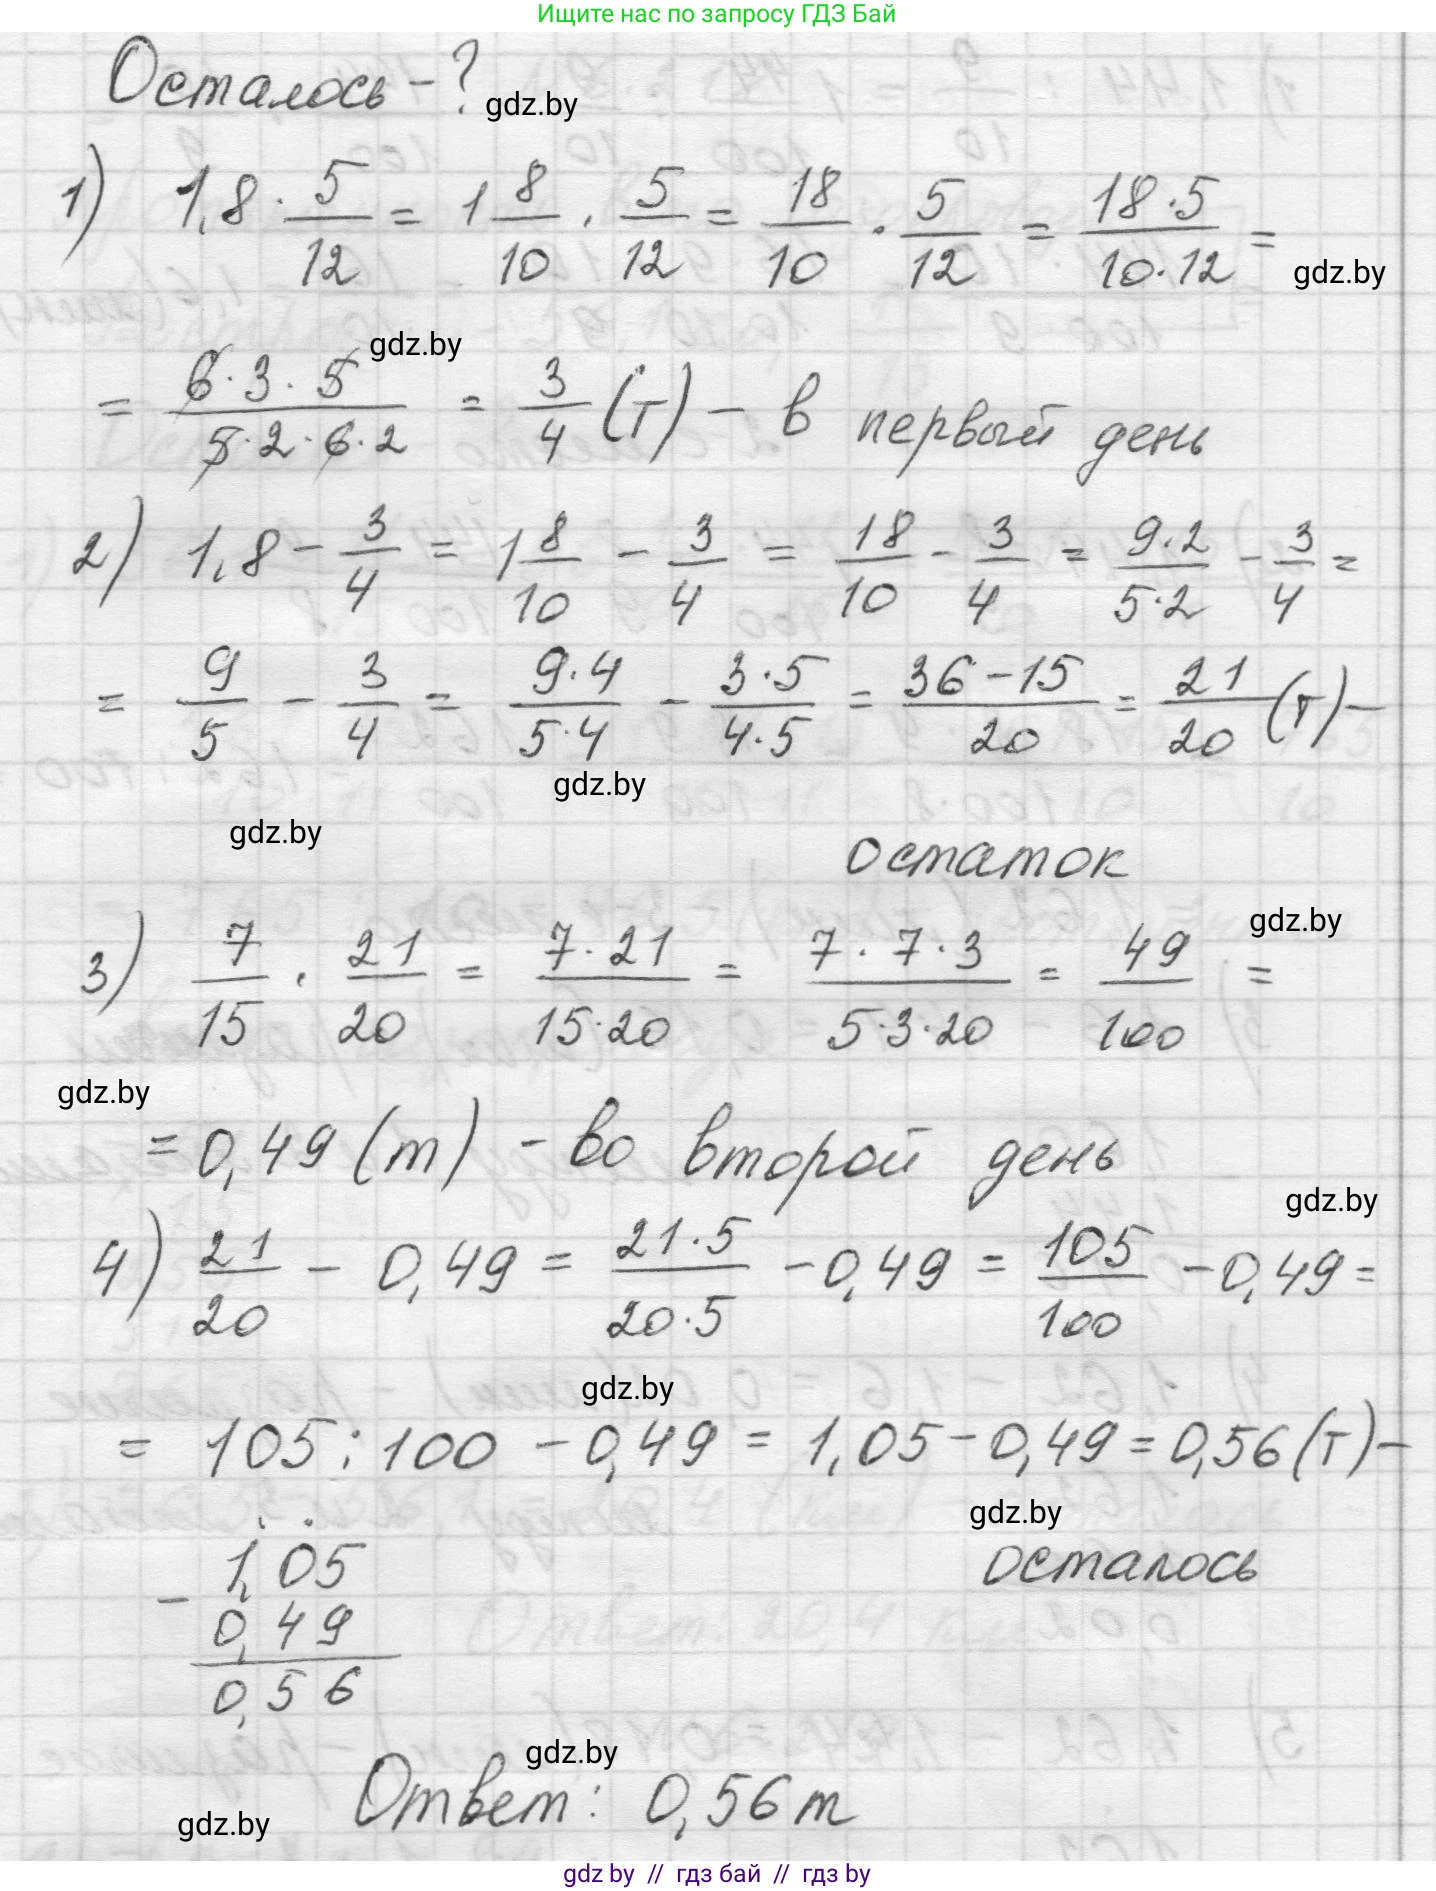 Ищите нас по запросу ГДЗ Бай
Осталось - ?
gdz.by
1) 1,8 · 5/12 = 1 8/10 · 5/12 = 18/10 · 5/12 = 18·5/10·12 =
gdz.by
gdz.by
= 6·3·5/5·2·6·2 = 3/4 (т) - в первый день
2) 1,8 - 3/4 = 1 8/10 - 3/4 = 18/10 - 3/4 = 9·2/5·2 - 3/4 =
= 9/5 - 3/4 = 9·4/5·4 - 3·5/4·5 = 36-15/20 = 21/20 (т) -
gdz.by
gdz.by
остаток
gdz.by
3) 7/15 · 21/20 = 7·21/15·20 = 7·7·3/5·3·20 = 49/100 =
gdz.by
= 0,49 (т) - во второй день
gdz.by
4) 21/20 - 0,49 = 21·5/20·5 - 0,49 = 105/100 - 0,49 =
gdz.by
= 105 : 100 - 0,49 = 1,05 - 0,49 = 0,56 (т) -
gdz.by
осталось
1,05
- 0,49
0,56
gdz.by
Ответ: 0,56 т
gdz.by
gdz.by // гдз бай // гдз by